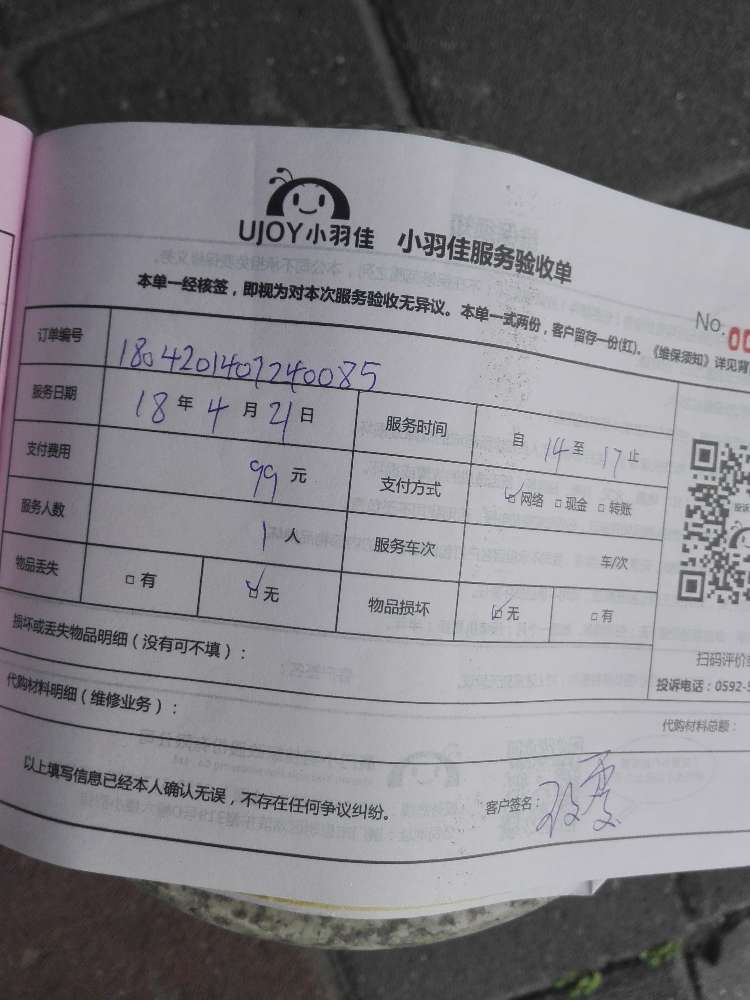 UJOY小羽佳 小羽佳服务验收单
本单一经核签，即视为对本次服务验收无异议。本单一式两份，客户留存一份(红)。《维保须知》详见背
No. 00
订单编号 1804201407240085
服务日期 18 年 4 月 21 日 服务时间 自 14 至 17 止
支付费用 99 元 支付方式 ☑网络 □现金 □转账
服务人数 1 人 服务车次 车/次
物品丢失 □有 ☑无 物品损坏 ☑无 □有
损坏或丢失物品明细（没有可不填）：
扫码评价
投诉电话：0592-5
代购材料明细（维修业务）：
代购材料总额：
以上填写信息已经本人确认无误，不存在任何争议纠纷。 客户签名：